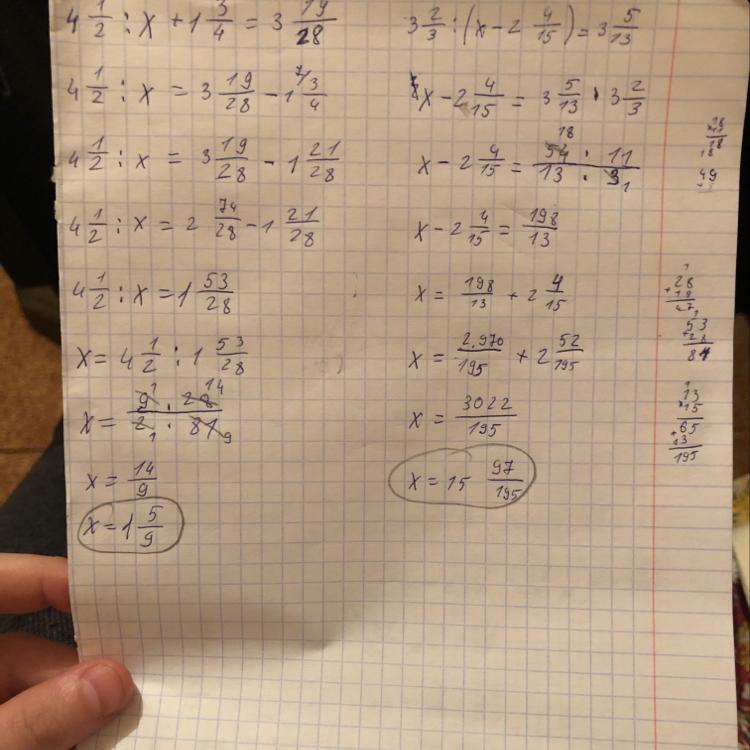 4 1/2 : x + 1 3/4 = 3 19/28
4 1/2 : x = 3 19/28 - 1 3/4
4 1/2 : x = 3 19/28 - 1 21/28
4 1/2 : x = 2 74/28 - 1 21/28
4 1/2 : x = 1 53/28
x = 4 1/2 : 1 53/28
x = 9 · 28 / 2 · 81
x = 14/9
x = 1 5/9
3 2/3 : (x - 2 4/15) = 3 5/13
x - 2 4/15 = 3 5/13 · 3 2/3
x - 2 4/15 = 54 · 11 / 13 · 3
x - 2 4/15 = 198/13
x = 198/13 + 2 4/15
x = 2.970/195 + 2 52/195
x = 3022/195
x = 15 97/195
28
+19
47
53
+28
81
13
×15
65
+13
195